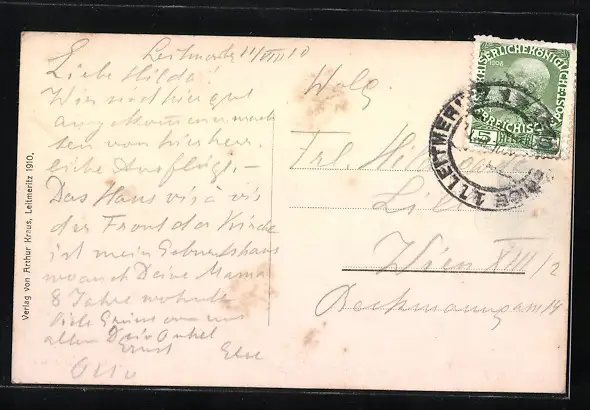 Leitmeritz 11/VIII 10
Liebe Hilda!
Wir sind hier gut
angekommen, mach
ten von hier herr
liche Ausflüge. –
Das Haus vis à vis
der Front der Kirche
ist mein Geburtshaus
wo auch Deine Mama
8 Jahre wohnte
Viele Grüsse von uns
allen Dein Onkel
Ernst Else
Otto
Verlag von Arthur Kraus, Leitmeritz 1910.
Wolg.
Frl. Hilda
Wien XIII/2
KAISERLICHE KÖNIGLICHE ÖSTERREICHISCHE
1908
5
HELLER
LEITMERITZ